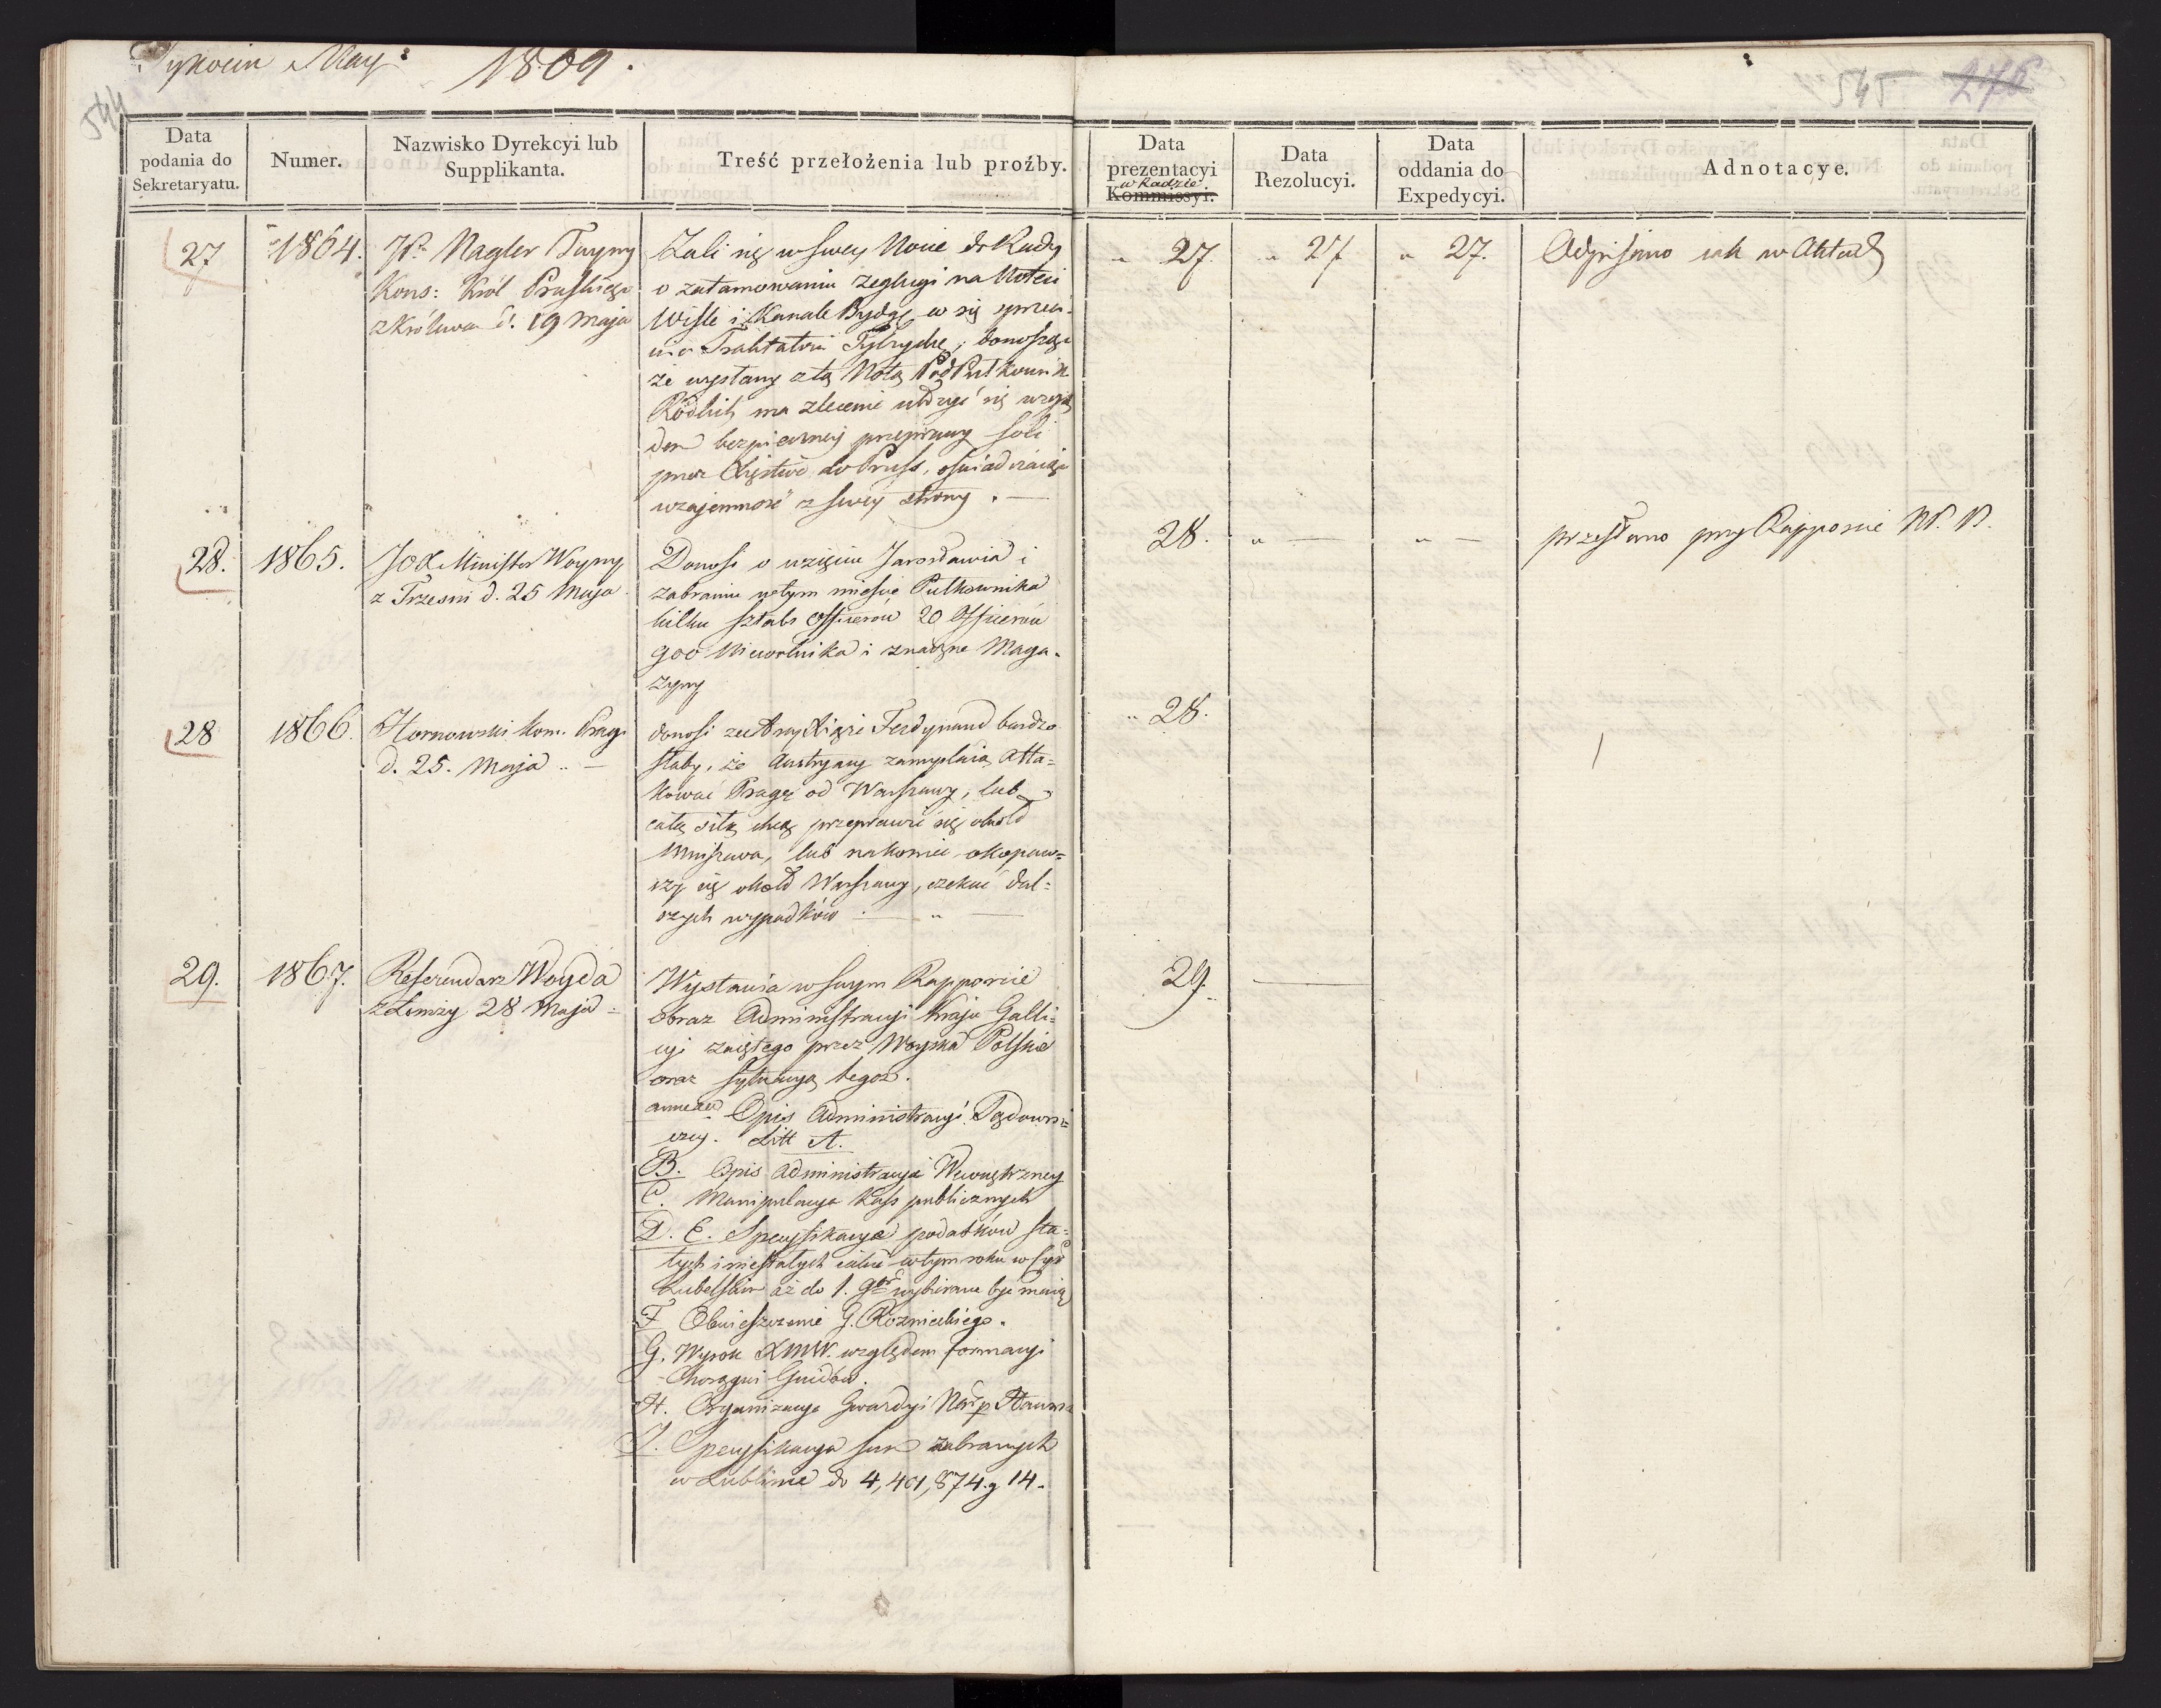 Tykocin May: 1809.
544
545 276
Data podania do Sekretaryatu.
Numer.
Nazwisko Dyrekcyi lub Supplikanta.
Treść przełożenia lub proźby.
Data prezentacyi Kommissyi.
w Radzie
Data Rezolucyi.
Data oddania do Expedycyi.
Adnotacye.
27 1864. JP. Nagler Tayny
Kons: Król Pruskiego
z Królewca d. 19 maja
Żali się w swey Nocie do Rady
o zatamowaniu żeglugi na Noteci
Wiśle i Kanale Bydg
Traktatowi Tylżyckie, donosząc
że wysłany z tą Notą PodPułkownik
Rödlich, ma zlecenie ułożyć się wzglę
dem bezpieczney przeprawy soli
przez Xięstwo do Pruss, oświadczaiąc
wzajemność z swey strony. —
27. 27 27. Odpisano iak w Aktach
28. 1865. JOX Minister Woyny
z Trzesni d. 25 Maja
Donosi o wzięciu Jarosławia i
zabraniu w tym mieście Pułkownika
kilku sztabs Officerów 20 Officerów
900 Niewolnika i znaczne Maga-
zyny
28. — — przesłano przy Rapporcie
28 1866. Hornowski Kom. Pragi
d. 25. Maja —
donosi że Arcy Xiąże Ferdynand bardzo
słaby, że Austryacy zamyślaią Atta=
kować Pragę od Warszawy, lub
całą siłą chcą przeprawić się około
Mniszewa, lub nakoniec okopaw=
szy się około Warszawy, czekać dal=
szych wypadków —
28.
29. 1867. Referendarz Woyda
z Łomży 28 Maja
Wystawia w swym Rapporcie
obraz Administracyi Kraju Galli=
cyi zaiętego przez Woyska Polskie
oraz sytuacyą tegoż.
annexa Opis Administracyi Sądowni=
czey. Litt A.
B. Opis Administracyi Wewnętrzney
C. Manipulacya Kass publicznych
D. E. Specyfikacya podatków sta=
łych i niestałych iakie w tym roku w Cyr
Lubelskim aż do 1. 9br wybierane być maią
F Obwieszczenie G. Rożnieckiego.
G. Wyrok XMW. względem formacyi
Chorągwi Guidów.
H. Organizacya Gwardyi Nar p
I. Specyfikacya sum zabranych
w Lublinie do 4,401,874. g 14.
29. —